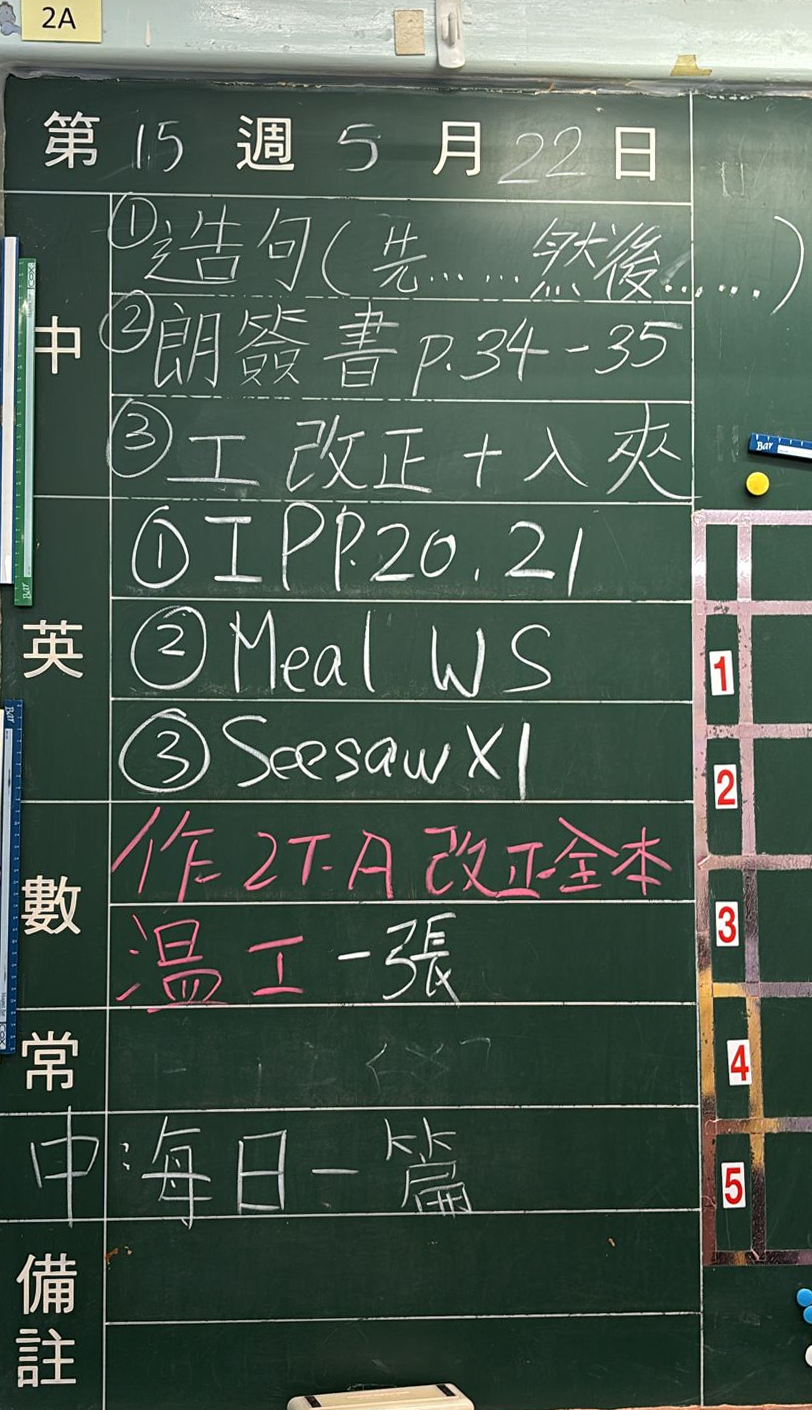 2A
第 15 週 5 月 22 日
中
①造句(先……然後……)
②朗簽書 p.34-35
③工 改正+入夾
英
①I PP.20.21
②Meal WS
③SeesawX1
數
作 2T.A 改正全本
溫工一張
常
中
:每日一篇
備註
1
2
3
4
5